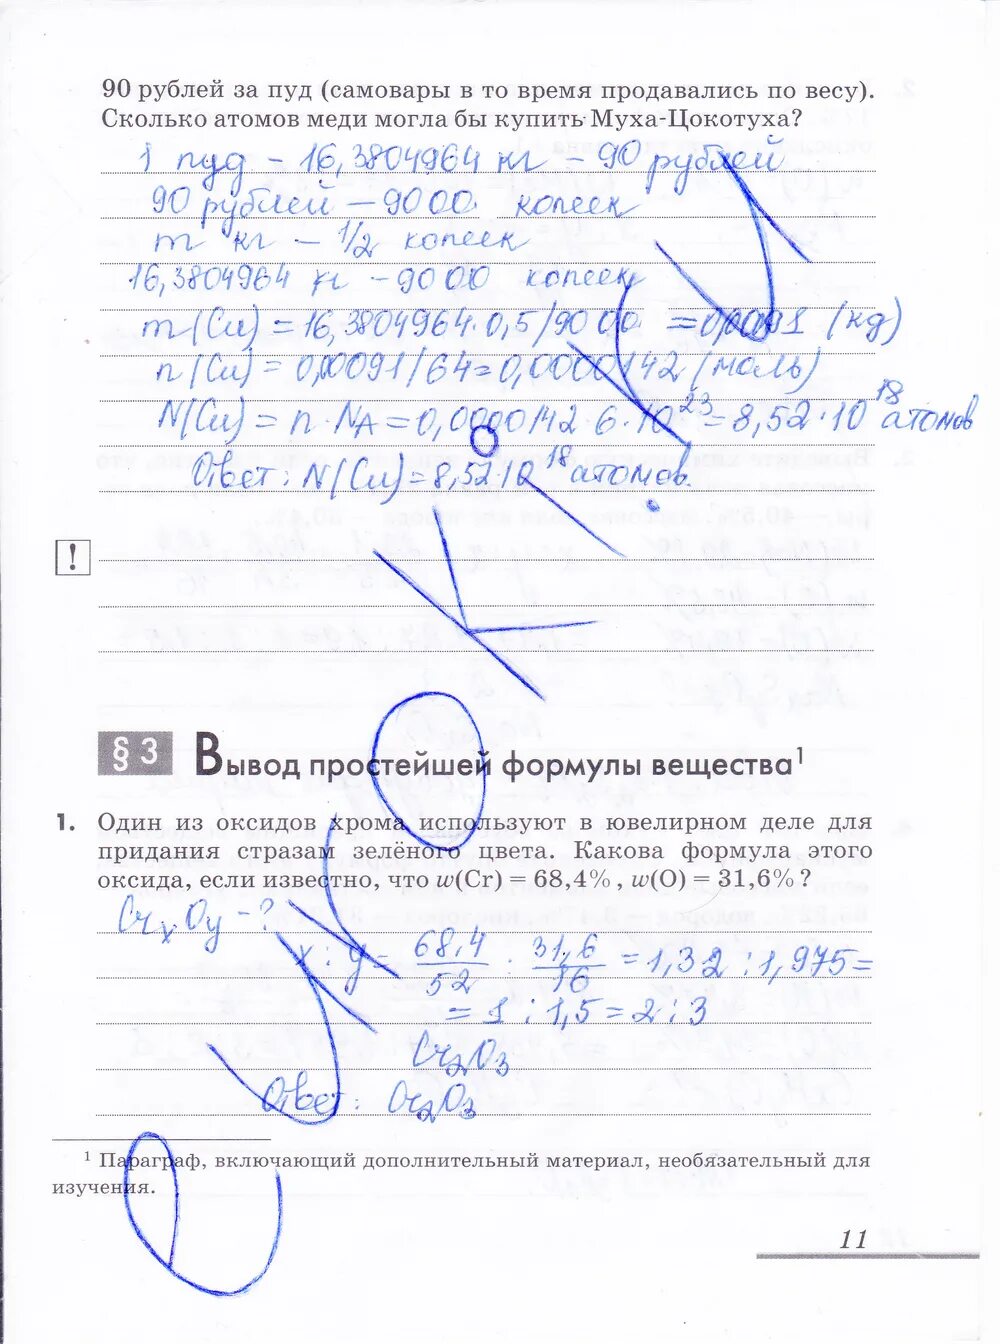 90 рублей за пуд (самовары в то время продавались по весу).
Сколько атомов меди могла бы купить Муха-Цокотуха?
1 пуд – 16,3804964 кг – 90 рублей
90 рублей – 9000 копеек
m кг – 1/2 копеек
16,3804964 кг – 9000 копеек
m(Cu) = 16,3804964·0,5/9000 = 0,00091 (кг)
n(Cu) = 0,00091/64 = 0,0000142 (моль)
N(Cu) = n·NA = 0,0000142·6·10²³ = 8,52·10¹⁸ атомов
Ответ: N(Cu) = 8,52·10¹⁸ атомов.
!
§ 3 Вывод простейшей формулы вещества¹
1. Один из оксидов хрома используют в ювелирном деле для
придания стразам зелёного цвета. Какова формула этого
оксида, если известно, что w(Cr) = 68,4%, w(O) = 31,6%?
CrxOy – ?
x : y = 68,4/52 : 31,6/16 = 1,32 : 1,975 =
= 1 : 1,5 = 2 : 3
Cr₂O₃
Ответ: Cr₂O₃
¹ Параграф, включающий дополнительный материал, необязательный для
изучения.
11